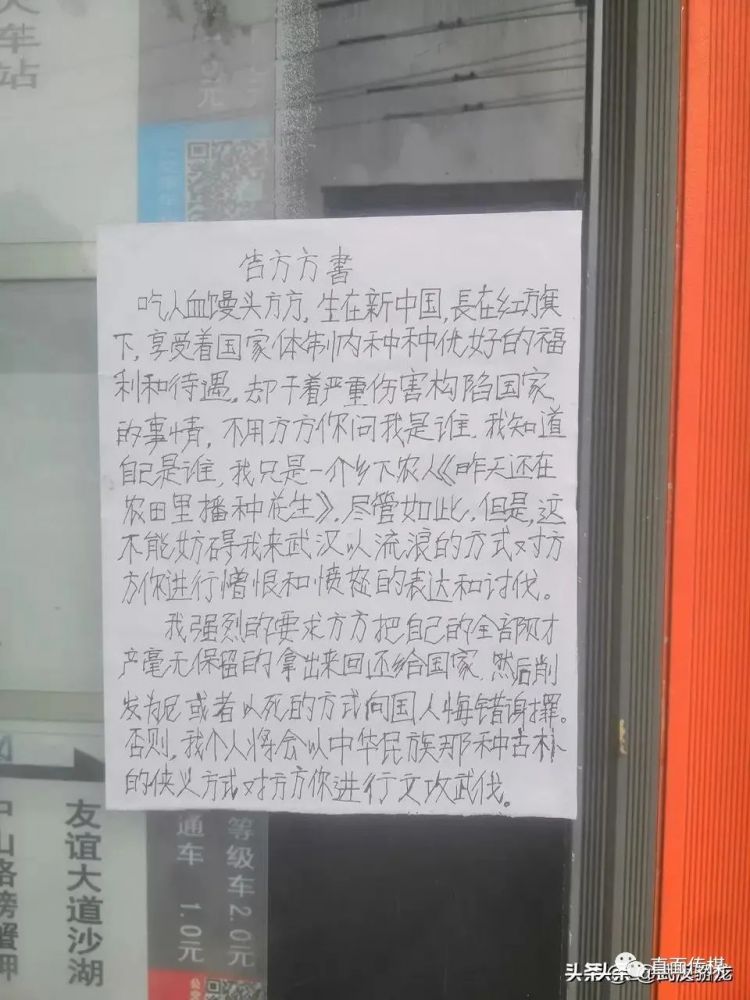 火车站
元
告方方書
吃人血馒头方方，生在新中国，長在红旗
下，享受着国家体制内种种优好的福
利和待遇。却干着严重伤害构陷国家
的事情，不用方方你问我是谁，我知道
自己是谁，我只是一个乡下农人《昨天还在
农田里播种花生》，尽管如此，但是，这
不能妨碍我来武汉以流浪的方式对方
方你进行憎恨和愤怒的表达和讨伐。
我强烈的要求方方把自己的全部财才
产毫无保留的拿出来回还给国家，然后削
发为尼或者以死的方式向国人悔错谢罪。
否则，我个人将会以中华民族那种古朴
的侠义方式对方方你进行文攻武伐。
中山路螃蟹岬
友谊大道沙湖
通车 1.0元
等级车2.0元
直面传媒
头条